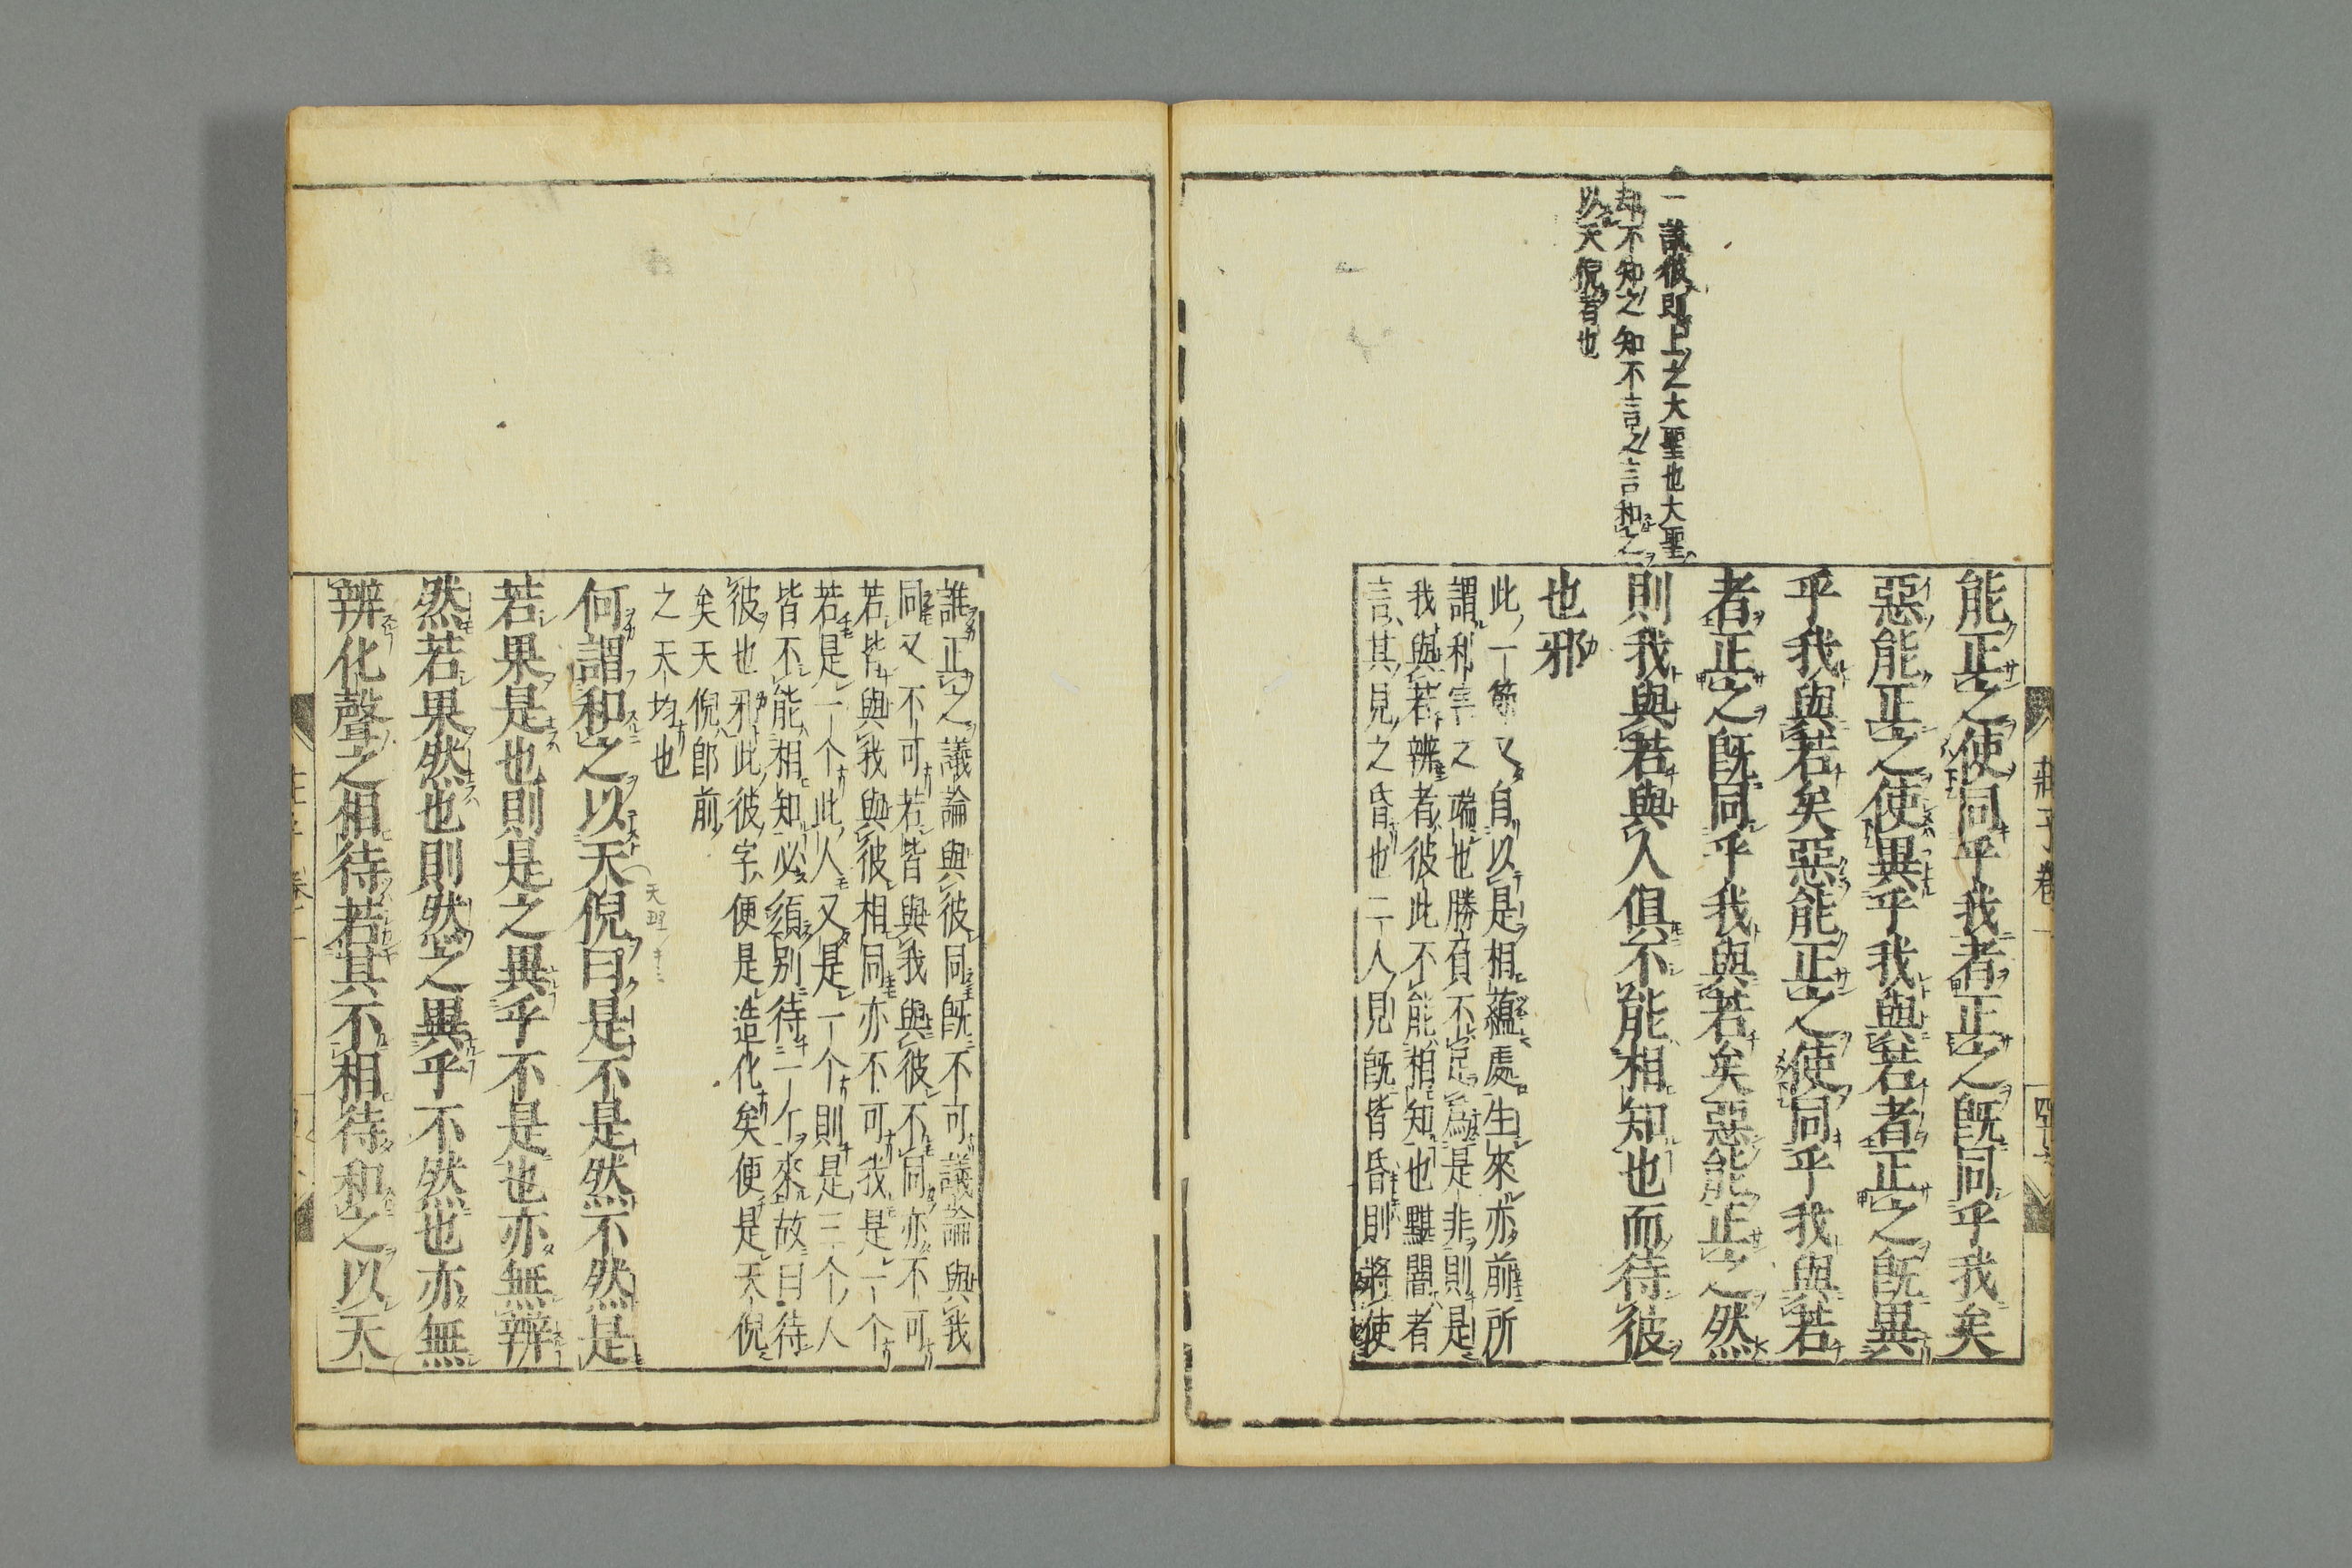 一說彼即上之大聖也大聖
却不知之知不言之言和之
以天倪者也
能正之使同乎我者正之既同乎我矣
惡能正之使異乎我與若者正之既異
乎我與若矣惡能正之使同乎我與若
者正之既同乎我與若矣惡能正之然
則我與若與人俱不能相知也而待彼
也邪
此一節又自以是相蘊處生來亦前所
謂利害之端也勝負不足為是非則是
我與若辨者彼此不能相知也黮闇者
言其見之昏也二人見既皆昏則將使
莊子卷一
誰正之議論與彼同既不可議論與我
同又不可若皆與我與彼不同亦不可
若皆與我與彼相同亦不可我是一个
若是一个此人又是一个則是三个人
皆不能相知必須別待一个來故曰待
彼也邪此彼字便是造化矣便是天倪
矣天倪即前
之天均也
何謂和之以天倪曰是不是然不然是
天理
若果是也則是之異乎不是也亦無辨
然若果然也則然之異乎不然也亦無
辨化聲之相待若其不相待和之以天